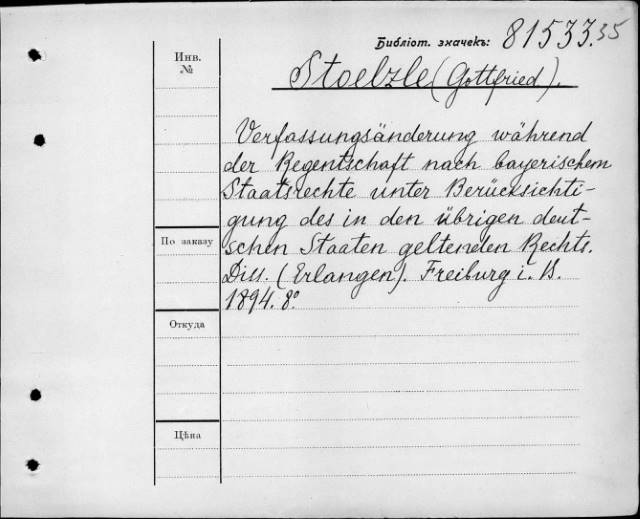 Библіот. значекъ: 81533.35
Инв.
№
Stoelzle (Gottfried).
Verfassungsänderung während
der Regentschaft nach bayerischem
Staatsrechte unter Berücksichti-
gung des in den übrigen deut-
schen Staaten geltenden Rechts.
Diss. (Erlangen). Freiburg i. B.
1894. 8º
По заказу
Откуда
Цѣна